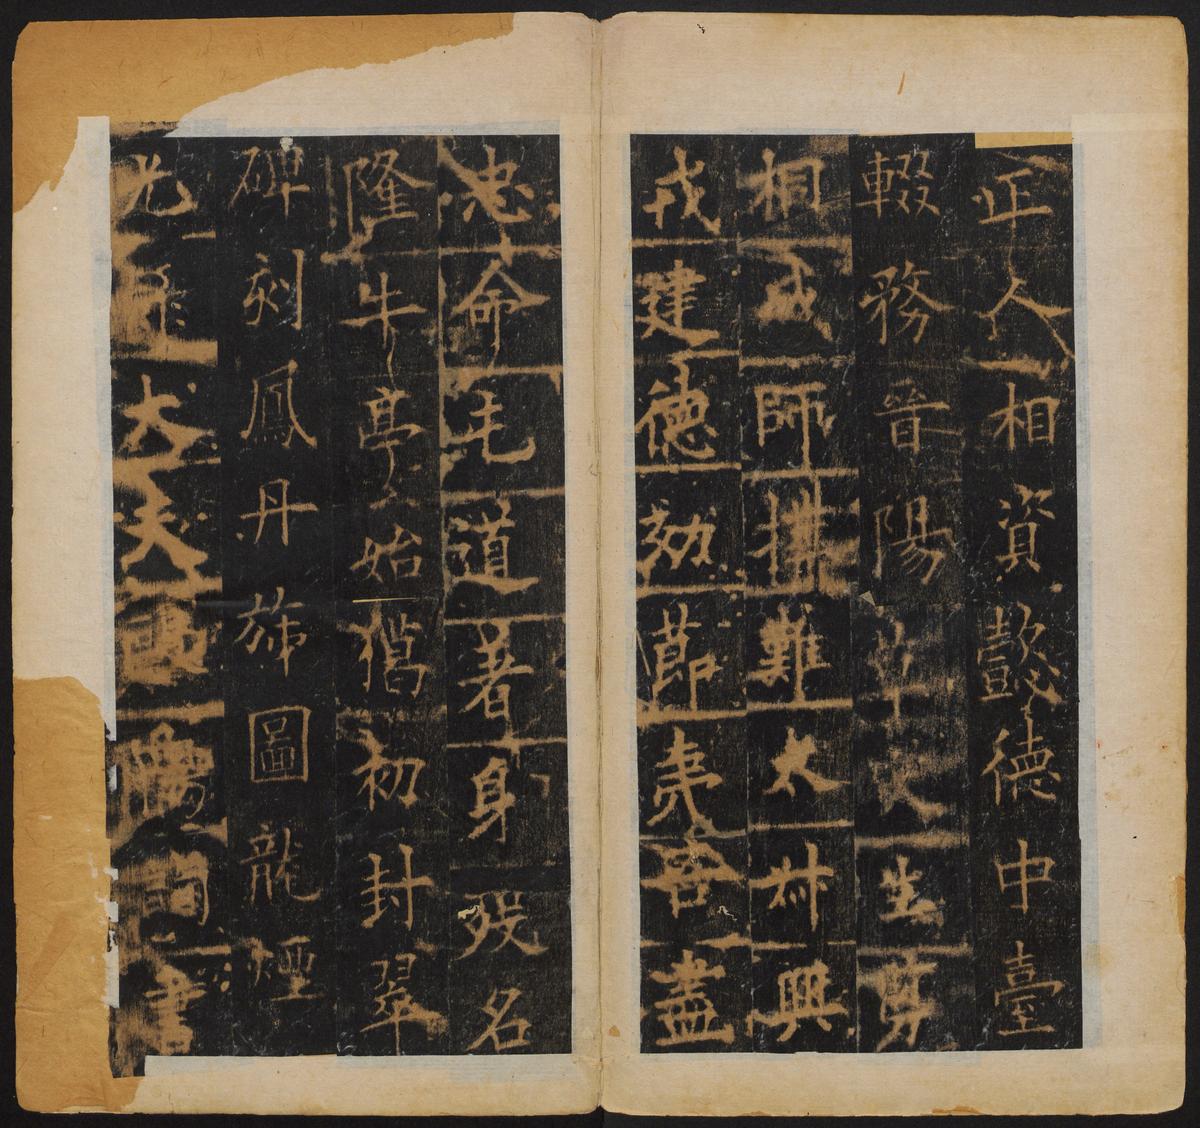 正人相資懿德中臺
輟務晉陽草昧生勇
相成師撲難太姒興
戎建德効節夷吾盡
忠命屯道著身歿名
隆牛亭始搆初封翠
碑刻鳳丹旐圖龍煙
光大夫詞書